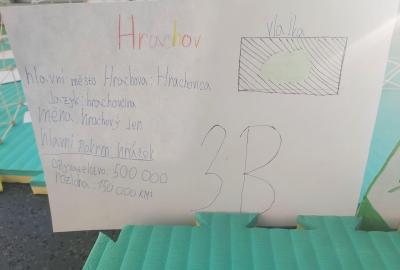 Hrachov
vlajka
hlavní město Hrachova: Hrachovica
Jazyk: hrachovčina
měna: hrachový jen
hlavní pokrm hrášek
obyvatelstvo: 500 000
rozloha: 150 000 KM²
3B